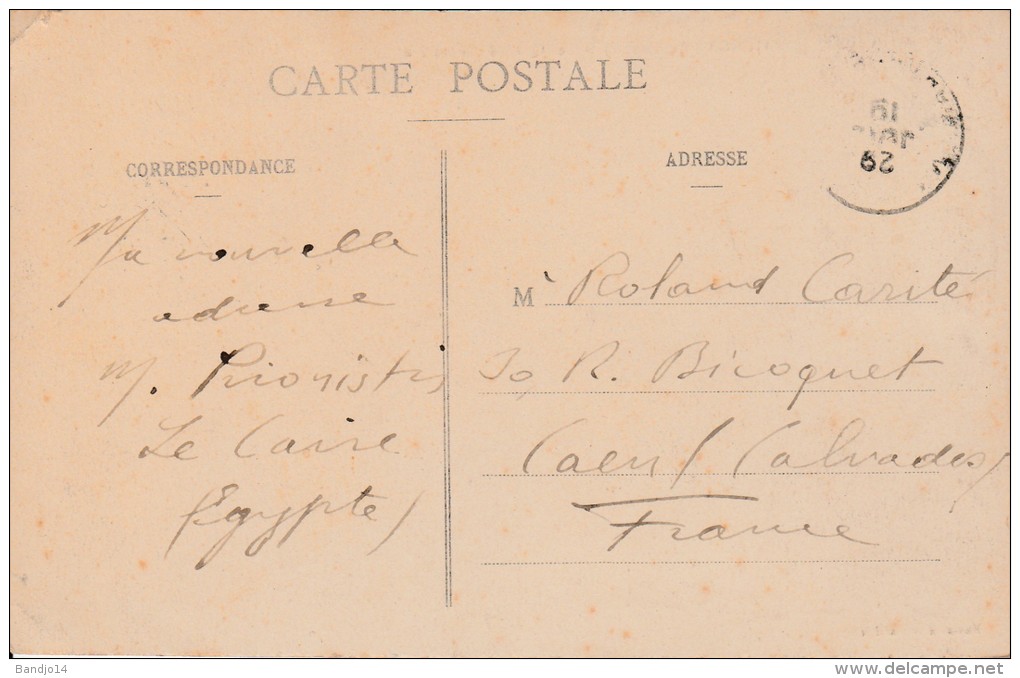 CARTE POSTALE
CORRESPONDANCE
ADRESSE
Ma nouvelle
adresse
M.
Le Caire
(Egypte)
Mr Roland Carité
30, R. Bicoquet
Caen (Calvados)
France
Bandjo14
delcampe.net